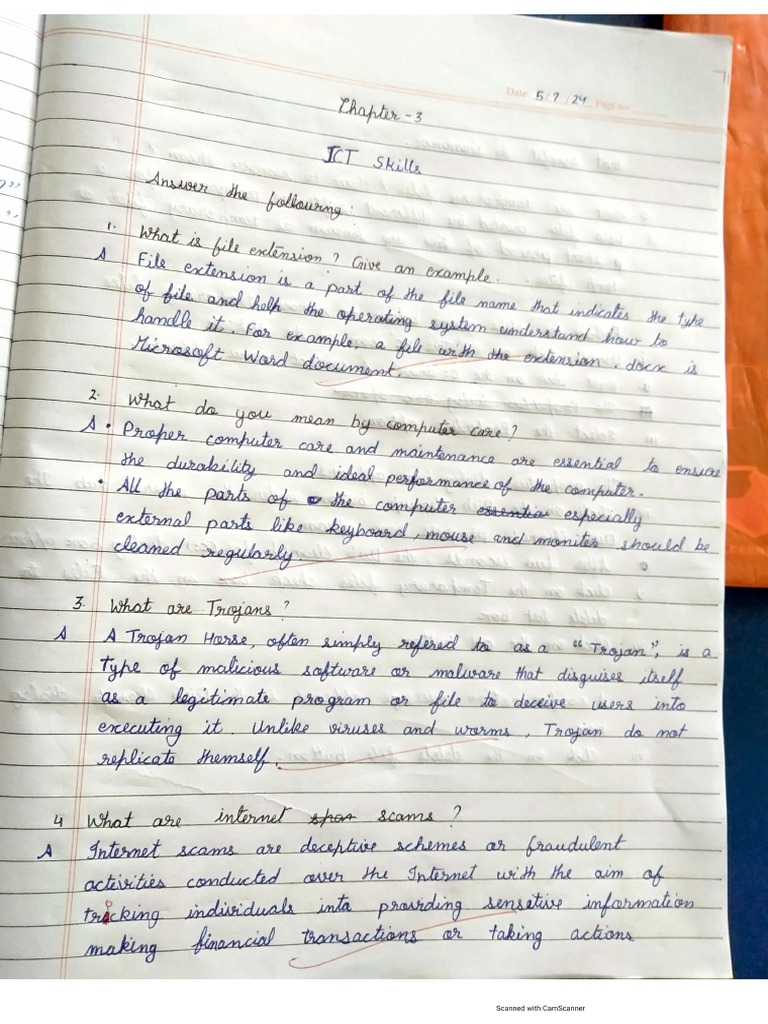 Date: 5/7/24 Page no.
Chapter-3
ICT Skills
Answer the following:
1. What is file extension? Give an example.
A File extension is a part of the file name that indicates the type
of file and help the operating system understand how to
handle it. For example, a file with the extension .docx is
Microsoft Word document.
2. What do you mean by computer care?
A • Proper computer care and maintenance are essential to ensure
the durability and ideal performance of the computer.
• All the parts of the computer essentia especially
external parts like keyboard, mouse and moniter should be
cleaned regularly
3. What are Trojans?
A A Trojan Horse, often simply refered to as a "Trojan", is a
type of malicious software or malware that disguises itself
as a legitimate program or file to deceive users into
executing it. Unlike viruses and worms, Trojan do not
replicate themself.
4 What are internet scams?
A Internet scams are deceptive schemes or fraudulent
activities conducted over the Internet with the aim of
tricking individuals into providing sensetive information
making financial transactions or taking actions
Scanned with CamScanner